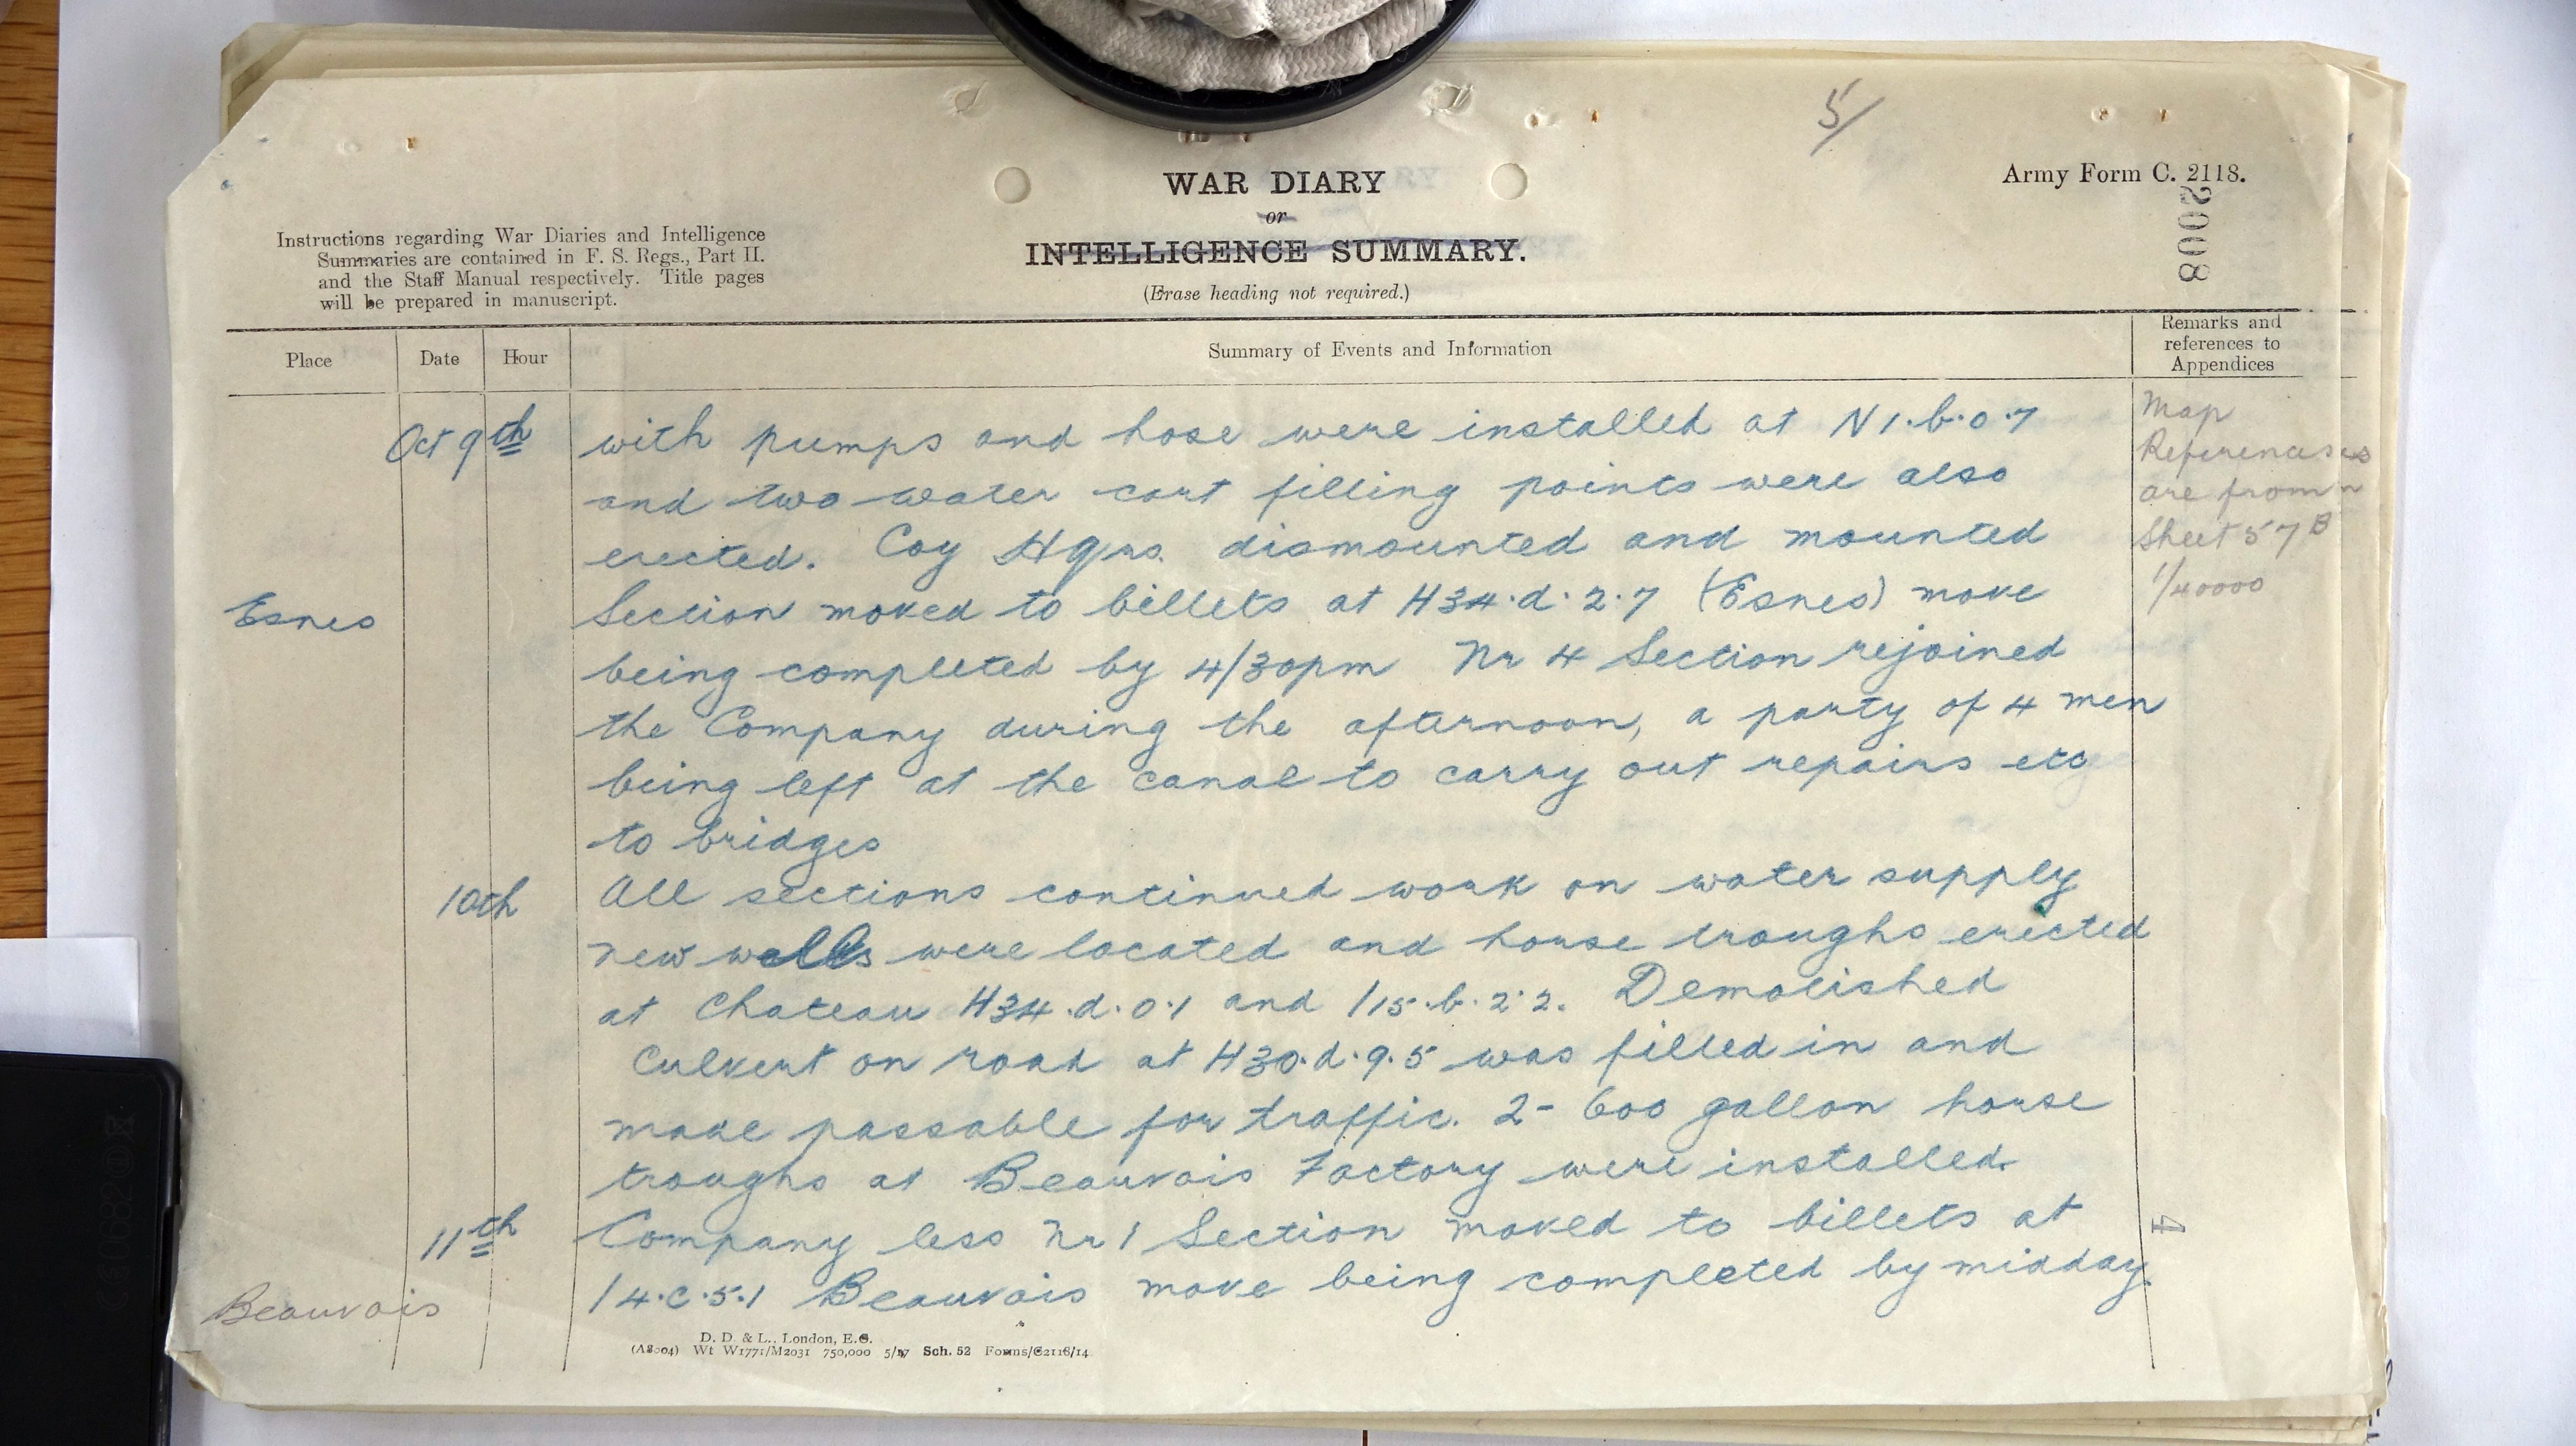 5/
WAR DIARY
or
INTELLIGENCE SUMMARY.
(Erase heading not required.)
Army Form C. 2118.
2008
Instructions regarding War Diaries and Intelligence
Summaries are contained in F. S. Regs., Part II.
and the Staff Manual respectively. Title pages
will be prepared in manuscript.
Place Date Hour Summary of Events and Information Remarks and references to Appendices
Oct 9th with pumps and hose were installed at N1.b.0.7
and two water cart filling points were also
erected. Coy Hqrs. dismounted and mounted
Esnes Section moved to billets at H34.d.2.7 (Esnes) move
being completed by 4/30pm Nr 4 Section rejoined
the Company during the afternoon, a party of 4 men
being left at the canal to carry out repairs etc
to bridges
10th All sections continued work on water supply
new wells were located and horse troughs erected
at Chateau H34.d.0.1 and I15.b.2.2. Demolished
Culvert on road at H30.d.9.5 was filled in and
made passable for traffic. 2- 600 gallon horse
troughs at Beauvais Factory were installed.
11th Company less Nr 1 Section moved to billets at
Beauvais I4.c.5.1 Beauvais move being completed by midday.
Map
References
are from
Sheet 57B
1/40000
4
D. D. & L., London, E.C.
(A8004) Wt W1771/M2031 750,000 5/17 Sch. 52 Forms/C2118/14